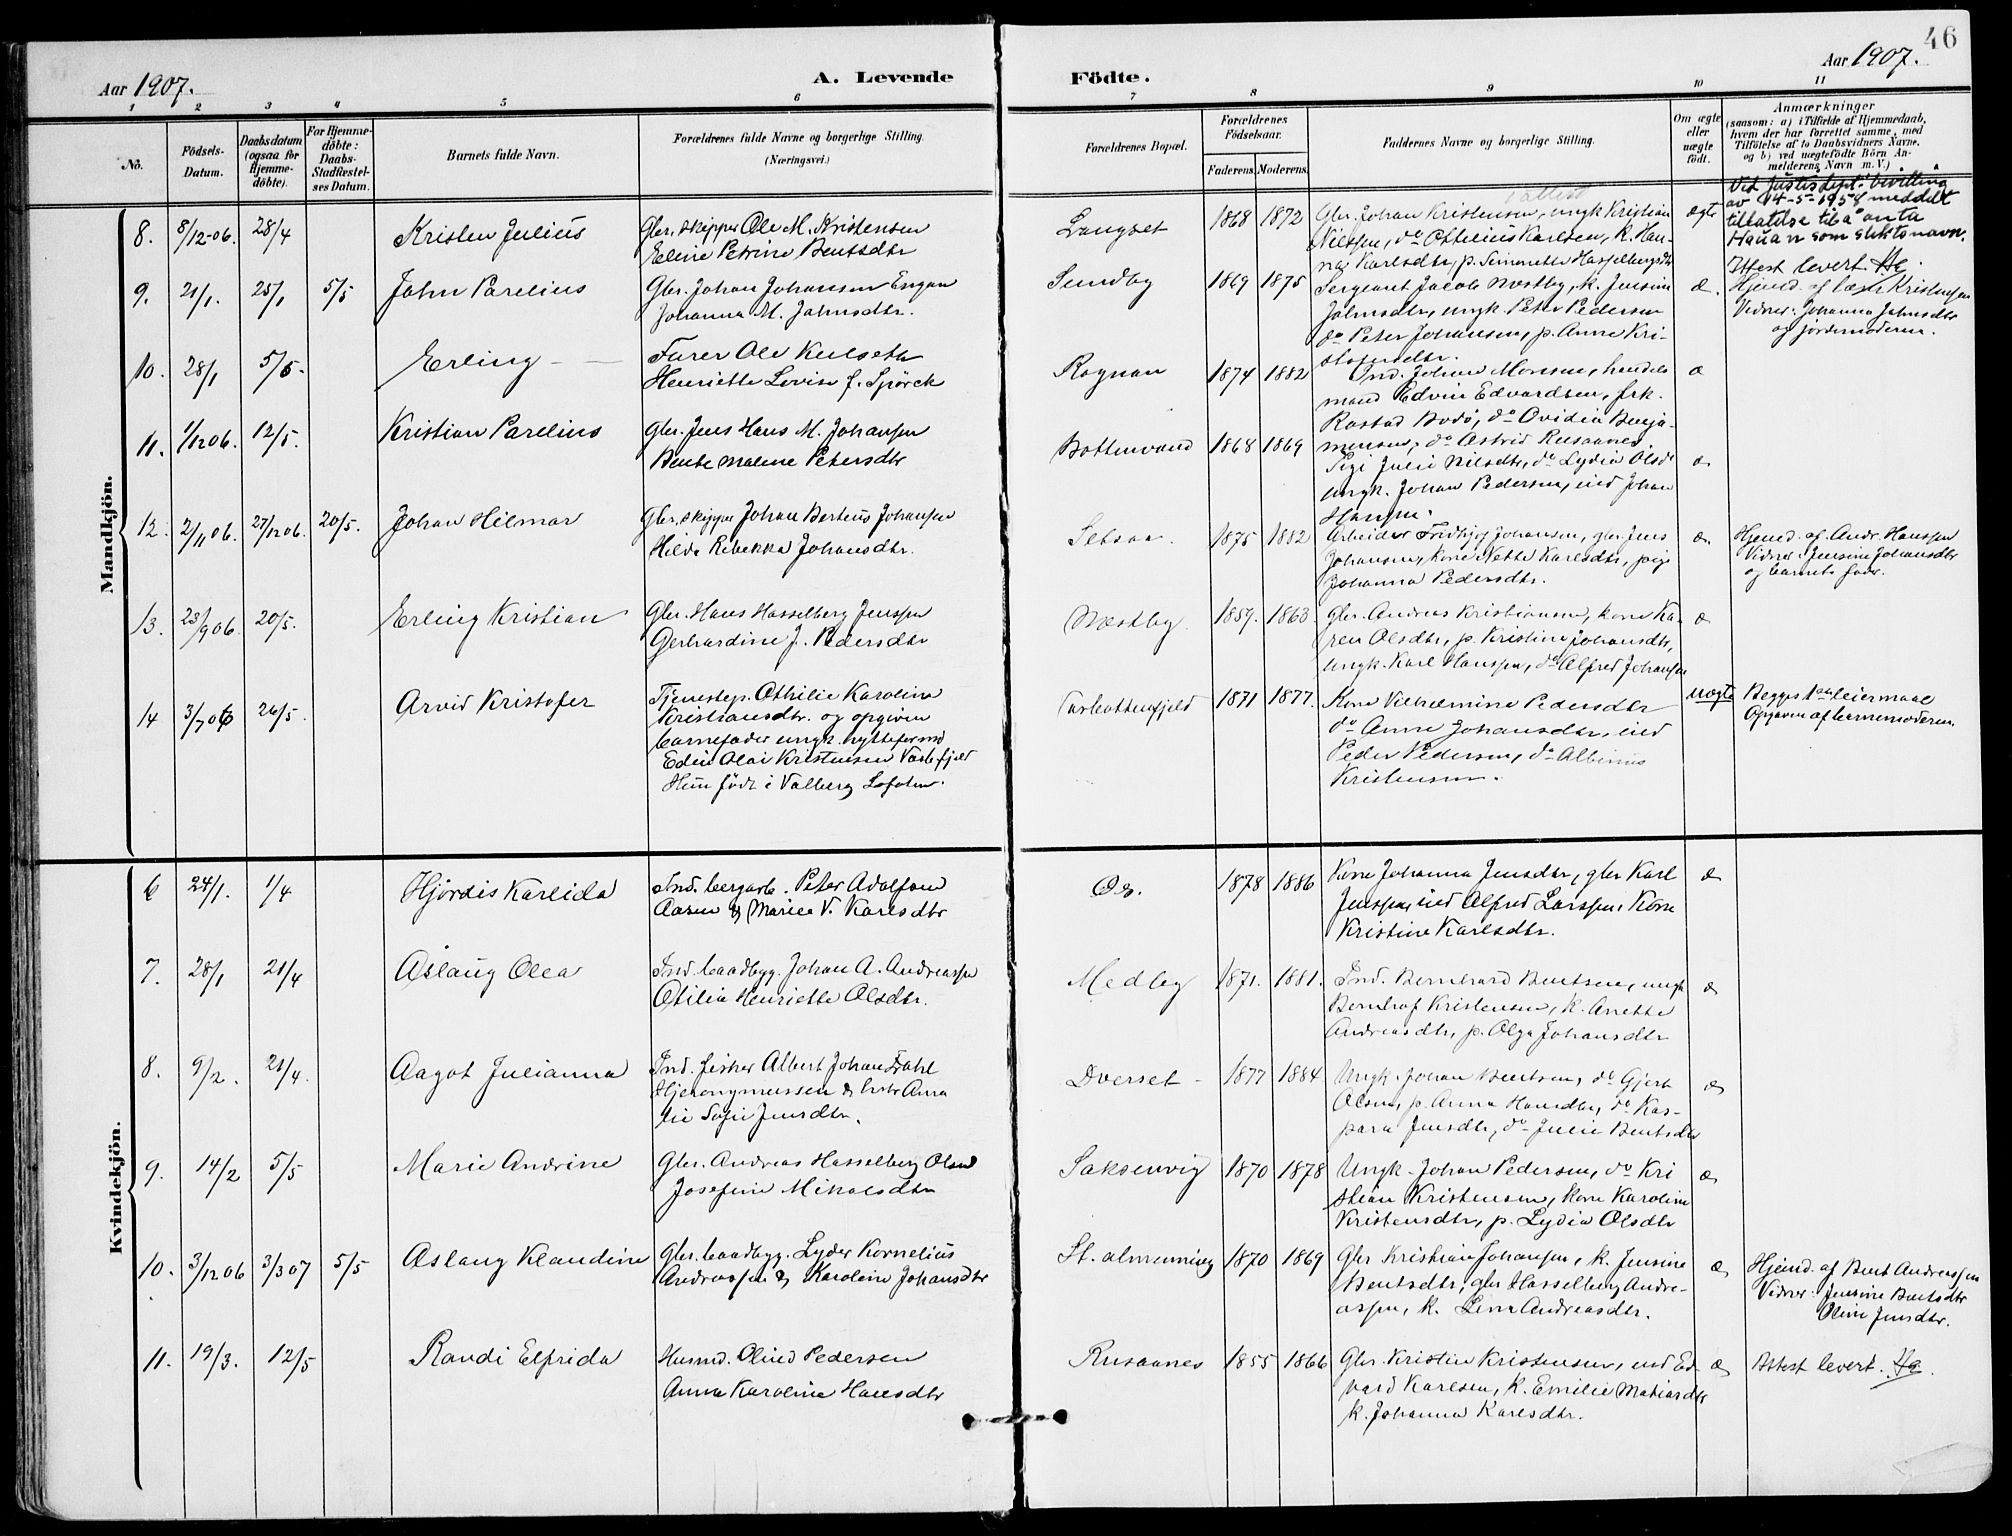 46
Aar 1907.
A. Levende
Födte.
Aar 1907.
1 2 3 4 5 6 7 8 9 10 11
No.
Födsels-
Datum.
Daabsdatum
(ogsaa for
Hjemme-
döbte).
For Hjemme-
döbte:
Daabs-
Stadfæstel-
ses Datum.
Barnets fulde Navn.
Forældrenes fulde Navne og borgerlige Stilling.
(Næringsvei.)
Forældrenes Bopæl.
Forældrenes
Födselsaar.
Faderens.
Moderens.
Faddernes Navne og borgerlige Stilling.
Om ægte
eller
uægte
födt.
Anmærkninger
(saasom: a) i Tilfælde af Hjemmedaab,
hvem der har forrettet samme, med
Tilföielse af to Daabsvidners Navne,
og b) ved uægtefödte Börn An-
melderens Navn m. V.)
Mandkjön.
8. 8/12-06. 28/4 Kristen Julius
Gbr. skipper Ole M. Kristensen
Eline Petrine Bentsdtr
Langset 1868 1872
Gbr. Johan Kristensen, ungk Kristian
Nilssen, do Ottelius Karlsen, k. Han-
na Karlsdtr, p. Simonette Hasselbergsdtr
ægte
Ved Justis dept. bevilling
av 14-5-1958 meddelt
tillatelse til å anta
Hauan som slektsnavn.
Attest levert
9. 21/1. 25/1 5/5 John Parelius
Gbr. Johan Johansen Engan
Johanna M. Johnsdtr.
Sundby 1869 1875
Sergeant Jacob Mostby, k. Jensine
Johnsdtr, ungk Peter Pedersen
do Peter Johansen, p. Anne Kri-
stofersdtr.
æ.
Hjemd. af Kristensen
Vidner: Johanna Johnsdtr
og jordemoderen.
10. 28/1 5/5. Erling
Furer Ole Kulseth
Henriette Lovise f. Spörck
Rognan 1874 1882
Ind. Johan Monsen, handels
mand Edvin Edvardsen, frk.
Rastad Bodö, do Ovidia Benja-
minsen, do Astrid Rusaanes.
æ
11. 1/12 06. 12/5. Kristian Parelius
Gbr. Jens Hans M. Johansen
Bente Malene Petersdtr
Bottenvand 1868 1869
Pige Julie Nilsdtr, do Lydia Olsd
ungk. Johan Pedersen, ind Johan
Hansen.
æ
12. 2/11 06. 27/12 06. 20/5. Johan Hilmar
Gbr. skipper Johan Berteus Johansen
Hilda Rebekka Johansdtr.
Setsaa. 1875 1882
Arbeider Fridhjof Johansen, gbr. Jens
Johansen, kone Nette Karlsdtr, pige
Johanna Pedersdtr.
æ
Hjemd. af Andr. Hanssen
Vidner: Jensine Johansdtr
og barnets fader.
13. 23/9 06. 20/5. Erling Kristian
Gbr. Hans Hasselberg Jenssen
Gerhardine J. Pedersdtr
Næstby. 1859. 1863
Gbr. Andreas Kristiansen, kone Ka-
ren Olsdtr, p. Kristine Johansdtr,
ungk. Karl Hanssen, do Alfred Johansen
æ
14 3/7 06 26/5. Arvid Kristofer
Tjenestep. Othilie Karoline
Kristiansdtr. og opgiven
barnefader ungk. nytteformd
Edin Olai Kristensen Vaslefjeld
Hun født i Valberg Lofoten.
1871 1877.
Kone Vilhelmine Pedersdtr
do Anne Johansdtr, ind
Peder Pedersen, do Albinus
Kristensen.
uægte
Begges 1ste leiermaal
Opgaven af barnemoderen.
Kvindekjön.
6 24/1. 1/4 Hjördis Karlida
Ind. bergarb. Peter Adolfsen
Aasen & Marie V. Karlsdtr
Os. 1878 1886
Kone Johanna Jensdtr, gbr Karl
Jenssen, ind Alfred Larssen, Kone
Kristine Karlsdtr.
æ
7. 28/1 21/4 Aslaug Olea
Ind. baadbygg. Johan A. Andreassen
Otilie Henriette Olsdtr.
Medby 1871. 1881.
Ind. Bernhard Bentsen, ungk
Berntof Kristensen, k. Anette
Andreasdtr, p. Olga Johansdtr
æ
8. 9/2. 21/4. Aagot Julianna
Ind. fisker Albert Johan Dahl
Hjeronymussen & hstr Anna
lie Sofie Jensdtr.
Dverset 1877 1884
Ungk. Johan Bentsen, do Gjert
Olsen, p. Anna Hansdtr, do Kas-
para Jensdtr, do Julie Bentsdtr
æ
9. 14/2 5/5 Marie Andrine
Gbr. Andreas Hasselberg Olsen
Josefine Mikalsdtr
Saksenvig 1870 1878
Ungk. Johan Pedersen, do Kri
stian Kristensen, kone Karoline
Kristensdtr, p. Lydia Olsdtr
æ
10. 3/12 06 3/3 07 5/5 Aslaug Klaudine
Gbr. baadbygg. Lyder Kornelius
Andreassen & Karoline Johansdtr
St. almenning 1870 1869
Gbr Kristian Johansen, k. Jensine
Bentsdtr, gbr Hasselberg Andre-
assen, k. Lina Andreasdtr.
æ
Hjemd. af Bent Andreassen
Vidner: Jensine Bentsdtr
Oline Jensdtr.
11. 19/3. 12/5 Randi Elfrida
Husmd. Olind Pedersen
Anna Karoline Hansdtr
Rusaanes 1855 1866
Gbr. Kristen Kristensen, ind Ed-
vard Karlsen, k. Emilie Matiasdtr
k. Johanna Karlsdtr.
æ
Attest levert.